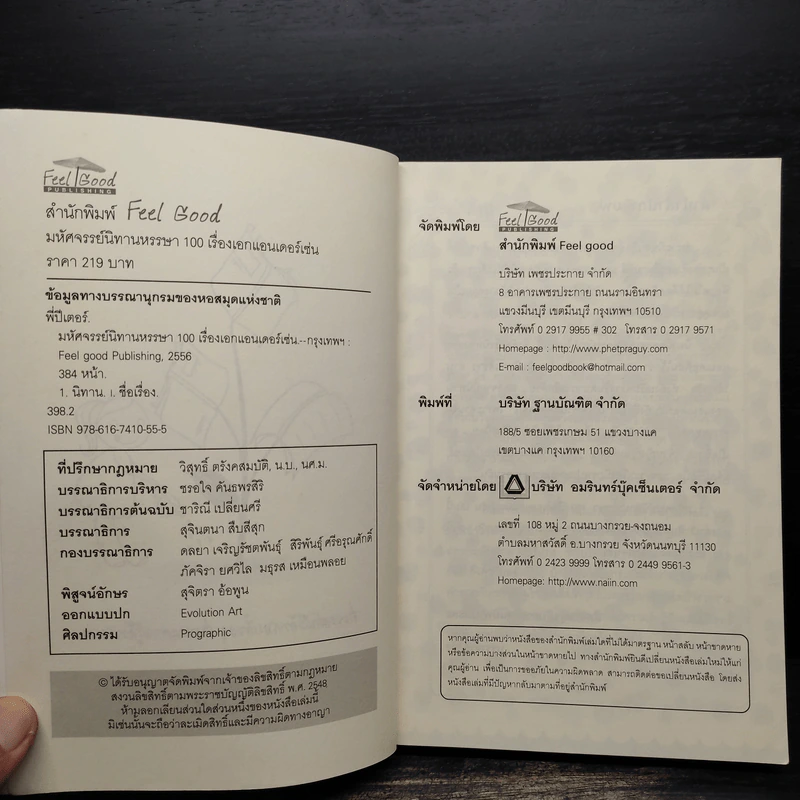 Feel Good
PUBLISHING
สำนักพิมพ์ Feel Good
มหัศจรรย์นิทานหรรษา 100 เรื่องเอกแอนเดอร์เซ่น
ราคา 219 บาท
ข้อมูลทางบรรณานุกรมของหอสมุดแห่งชาติ
พี่ปีเตอร์.
มหัศจรรย์นิทานหรรษา 100 เรื่องเอกแอนเดอร์เซ่น.--กรุงเทพฯ :
Feel good Publishing, 2556
384 หน้า.
1. นิทาน. I. ชื่อเรื่อง.
398.2
ISBN 978-616-7410-55-5
ที่ปรึกษากฎหมาย วิสุทธิ์ ตรังคสมบัติ, น.บ., นศ.ม.
บรรณาธิการบริหาร ชรอใจ คันธพรสิริ
บรรณาธิการต้นฉบับ ชาริณี เปลี่ยนศรี
บรรณาธิการ สุจินตนา สืบสีสุก
กองบรรณาธิการ ดลยา เจริญรัชตพันธุ์ สิริพันธุ์ ศรีอรุณศักดิ์
ภัคจิรา ยศวิไล มธุรส เหมือนพลอย
พิสูจน์อักษร สุจิตรา อ้อพูน
ออกแบบปก Evolution Art
ศิลปกรรม Prographic
© ได้รับอนุญาตจัดพิมพ์จากเจ้าของลิขสิทธิ์ตามกฎหมาย
สงวนลิขสิทธิ์ตามพระราชบัญญัติลิขสิทธิ์ พ.ศ. 2548
ห้ามลอกเลียนส่วนใดส่วนหนึ่งของหนังสือเล่มนี้
มิเช่นนั้นจะถือว่าละเมิดสิทธิ์และมีความผิดทางอาญา
Feel Good
PUBLISHING
จัดพิมพ์โดย
สำนักพิมพ์ Feel good
บริษัท เพชรประกาย จำกัด
8 อาคารเพชรประกาย ถนนรามอินทรา
แขวงมีนบุรี เขตมีนบุรี กรุงเทพฯ 10510
โทรศัพท์ 0 2917 9955 # 302 โทรสาร 0 2917 9571
Homepage : http://www.phetpraguy.com
E-mail : feelgoodbook@hotmail.com
พิมพ์ที่ บริษัท ฐานบัณฑิต จำกัด
188/5 ซอยเพชรเกษม 51 แขวงบางแค
เขตบางแค กรุงเทพฯ 10160
จัดจำหน่ายโดย บริษัท อมรินทร์บุ๊คเซ็นเตอร์ จำกัด
เลขที่ 108 หมู่ 2 ถนนบางกรวย-จงถนอม
ตำบลมหาสวัสดิ์ อ.บางกรวย จังหวัดนนทบุรี 11130
โทรศัพท์ 0 2423 9999 โทรสาร 0 2449 9561-3
Homepage: http://www.naiin.com
หากคุณผู้อ่านพบว่าหนังสือของสำนักพิมพ์เล่มใดที่ไม่ได้มาตรฐาน หน้าสลับ หน้าขาดหาย
หรือข้อความบางส่วนในหน้าขาดหายไป ทางสำนักพิมพ์ยินดีเปลี่ยนหนังสือเล่มใหม่ให้แก่
คุณผู้อ่าน เพื่อเป็นการขออภัยในความผิดพลาด สามารถติดต่อขอเปลี่ยนหนังสือ โดยส่ง
หนังสือเล่มที่มีปัญหากลับมาตามที่อยู่สำนักพิมพ์